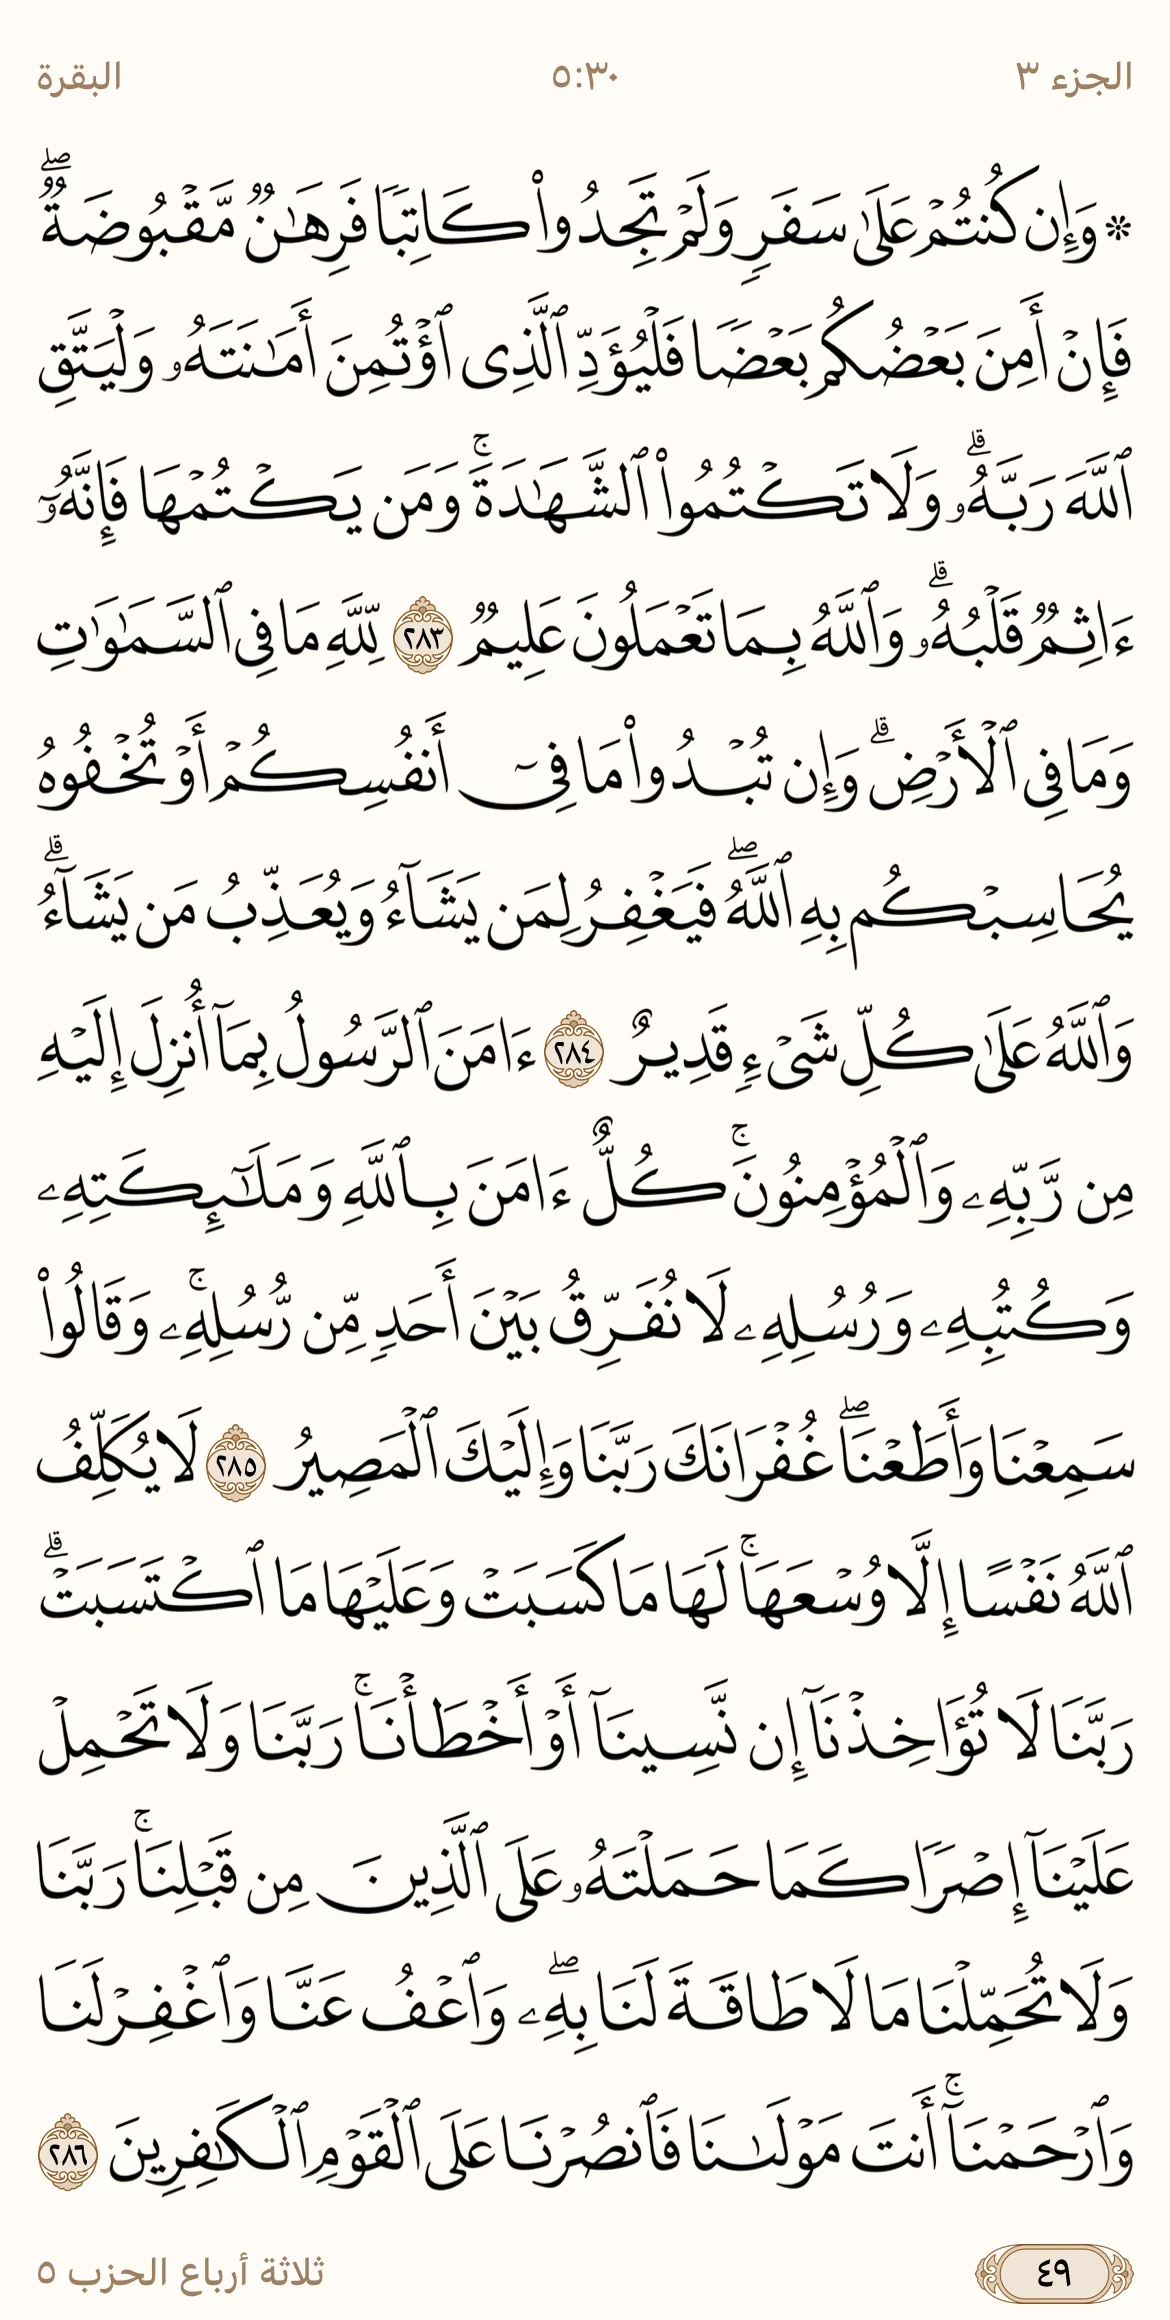 الجزء ٣
٥:٣٠
البقرة
۞ وَإِن كُنتُمۡ عَلَىٰ سَفَرٖ وَلَمۡ تَجِدُواْ كَاتِبٗا فَرِهَٰنٞ مَّقۡبُوضَةٞۖ
فَإِنۡ أَمِنَ بَعۡضُكُم بَعۡضٗا فَلۡيُؤَدِّ ٱلَّذِي ٱؤۡتُمِنَ أَمَٰنَتَهُۥ وَلۡيَتَّقِ
ٱللَّهَ رَبَّهُۥۗ وَلَا تَكۡتُمُواْ ٱلشَّهَٰدَةَۚ وَمَن يَكۡتُمۡهَا فَإِنَّهُۥٓ
ءَاثِمٞ قَلۡبُهُۥۗ وَٱللَّهُ بِمَا تَعۡمَلُونَ عَلِيمٞ ٢٨٣ لِّلَّهِ مَا فِي ٱلسَّمَٰوَٰتِ
وَمَا فِي ٱلۡأَرۡضِۗ وَإِن تُبۡدُواْ مَا فِيٓ أَنفُسِكُمۡ أَوۡ تُخۡفُوهُ
يُحَاسِبۡكُم بِهِ ٱللَّهُۖ فَيَغۡفِرُ لِمَن يَشَآءُ وَيُعَذِّبُ مَن يَشَآءُۗ
وَٱللَّهُ عَلَىٰ كُلِّ شَيۡءٖ قَدِيرٌ ٢٨٤ ءَامَنَ ٱلرَّسُولُ بِمَآ أُنزِلَ إِلَيۡهِ
مِن رَّبِّهِۦ وَٱلۡمُؤۡمِنُونَۚ كُلٌّ ءَامَنَ بِٱللَّهِ وَمَلَٰٓئِكَتِهِۦ
وَكُتُبِهِۦ وَرُسُلِهِۦ لَا نُفَرِّقُ بَيۡنَ أَحَدٖ مِّن رُّسُلِهِۦۚ وَقَالُواْ
سَمِعۡنَا وَأَطَعۡنَاۖ غُفۡرَانَكَ رَبَّنَا وَإِلَيۡكَ ٱلۡمَصِيرُ ٢٨٥ لَا يُكَلِّفُ
ٱللَّهُ نَفۡسًا إِلَّا وُسۡعَهَاۚ لَهَا مَا كَسَبَتۡ وَعَلَيۡهَا مَا ٱكۡتَسَبَتۡۗ
رَبَّنَا لَا تُؤَاخِذۡنَآ إِن نَّسِينَآ أَوۡ أَخۡطَأۡنَاۚ رَبَّنَا وَلَا تَحۡمِلۡ
عَلَيۡنَآ إِصۡرٗا كَمَا حَمَلۡتَهُۥ عَلَى ٱلَّذِينَ مِن قَبۡلِنَاۚ رَبَّنَا
وَلَا تُحَمِّلۡنَا مَا لَا طَاقَةَ لَنَا بِهِۦۖ وَٱعۡفُ عَنَّا وَٱغۡفِرۡ لَنَا
وَٱرۡحَمۡنَآۚ أَنتَ مَوۡلَىٰنَا فَٱنصُرۡنَا عَلَى ٱلۡقَوۡمِ ٱلۡكَٰفِرِينَ ٢٨٦
٤٩
ثلاثة أرباع الحزب ٥